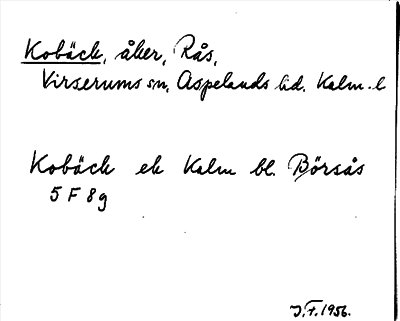 Kobäck, åker, Rås,
Virserums sn, Aspelands hd. Kalm. l
Kobäck ek Kalm bl. Börsås
5 F 8 g
J.F. 1956.